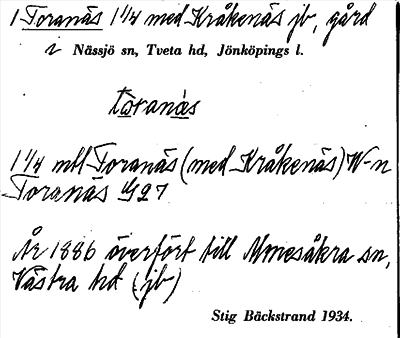 1 Toranäs 1 1/4 med Kråkenäs jb, gård
i Nässjö sn, Tveta hd, Jönköpings l.
tòranäs
1 1/4 mtl Toranäs (med Kråkenäs) W-n
Toranäs G27
År 1886 överfört till Almesåkra sn,
Västra hd (jb)
Stig Bäckstrand 1934.